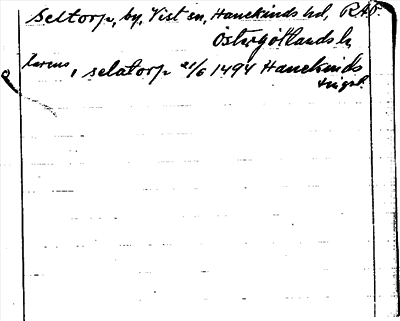 Seltorp, by, Vist sn, Hanekinds hd, RAP.
Östergötlands l.
i selatorp 21/6 1494 Hanekinds
tingst.